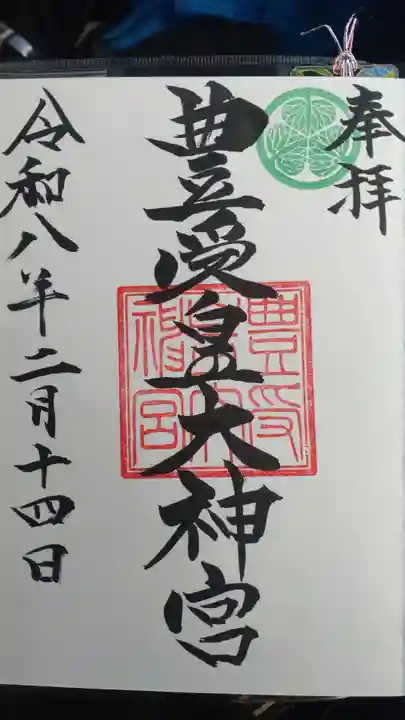 奉拝
豊受皇大神宮
豊受
皇大
神宮
令和八年二月十四日